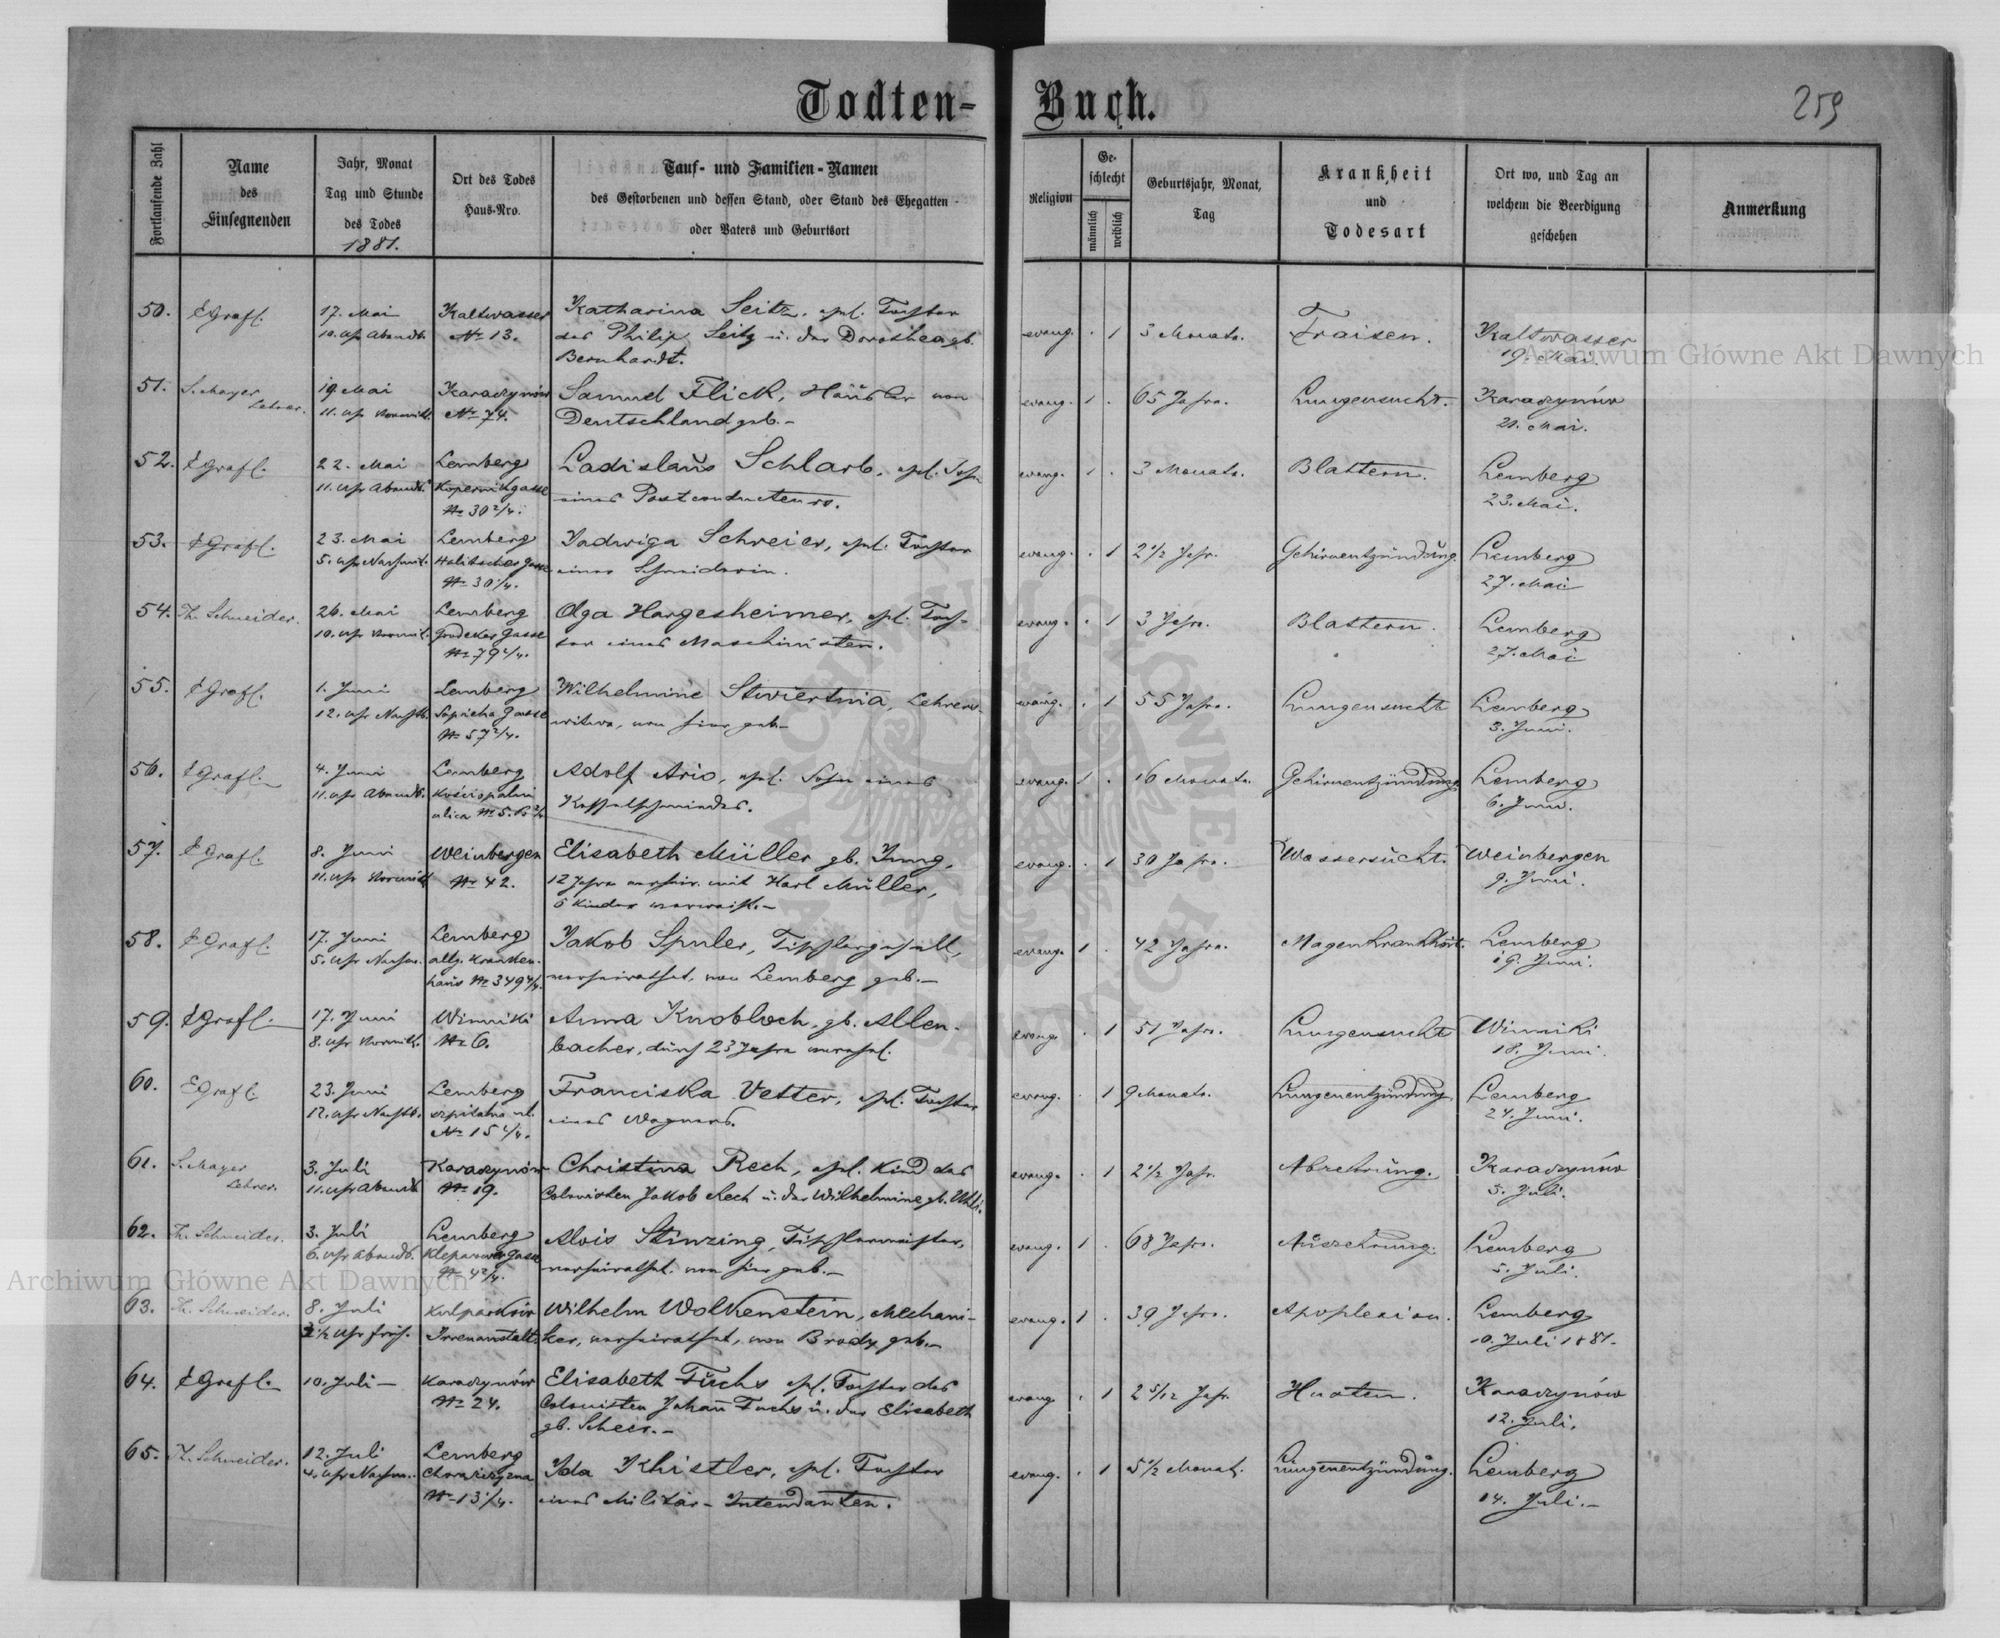 Todten-Buch.
259
Fortlaufende Zahl
Name
des
Einsegnenden
Jahr, Monat
Tag und Stunde
des Todes
1881.
Ort des Todes
Haus-Nro.
Tauf- und Familien-Namen
des Gestorbenen und dessen Stand, oder Stand des Ehegatten
oder Vaters und Geburtsort
Religion
Ge-
schlecht
männlich
weiblich
Geburtsjahr, Monat,
Tag
Krankheit
und
Todesart
Ort wo, und Tag an
welchem die Beerdigung
geschehen
Anmerkung
50. EGrafl. 17. Mai Kaltwasser Katharina Seitz, ehel. Tochter
10. Uhr Abends. No 13. des Philip Seitz u. der Dorothea gb.
Bernhardt.
evang. . 1 3 Monate. Fraisen. Kaltwasser
19. Mai.
51. S. Mayer 19. Mai Karaczynów Samuel Flick, Häusler von
Lehrer. 11. Uhr Vormitt. No 74. Deutschland geb.-
evang. 1 . 65 Jahre. Lungensucht. Karaczynów
21. Mai.
52. EGrafl. 22. Mai Lemberg Ladislaus Schlarb, ehel. Sohn
11. Uhr Abends. Kopernikgasse eines Postconducteurs.
No 30 2/4.
evang. 1 . 3 Monate. Blattern. Lemberg
23. Mai.
53. EGrafl. 23. Mai Lemberg Jadwiga Schreier, ehel. Tochter
5. Uhr Nachmit. Halitscher Gasse einer Schneiderin.
No 30 1/4.
evang. . 1 2 1/2 Jahr. Gehirnentzündung. Lemberg
27. Mai
54. Th. Schneider. 26. Mai Lemberg Olga Hargesheimer, ehel. Toch-
10. Uhr Vormit. Grodeker Gasse ter eines Maschinisten.
No 79 2/4.
evang. . 1 3 Jahre. Blattern. Lemberg
27. Mai
55. EGrafl. 1. Juni Lemberg Wilhelmine Stwiertnia, Lehrers-
12. Uhr Nachts. Sapieha Gasse witwe, von hier geb.-
No 57 2/4.
evang. . 1 55 Jahre. Lungensucht Lemberg
3. Juni.
56. EGrafl. 4. Juni Lemberg Adolf Ario, ehel. Sohn eines
11. Uhr Abends. Kesselschmiedes.
ulica No 5.
evang. 1 . 16 Monate. Gehirnentzündung. Lemberg
6. Juni.
57. EGrafl. 8. Juni Weinbergen Elisabeth Müller gb. Jung,
11. Uhr Vormitt. No 42. 12 Jahre verheir. mit Karl Müller,
6 Kinder verwaist.-
evang. . 1 30 Jahre. Wassersucht. Weinbergen
9. Juni.
58. EGrafl. 17. Juni Lemberg Jakob Spuler, Tischlergesell,
5. Uhr Nachm. allg. Kranken- verheirathet, von Lemberg geb.-
haus No 349 4/4.
evang. 1 . 42 Jahre. Magenkrankheit. Lemberg
19. Juni.
59. EGrafl. 17. Juni Winniki Anna Knobloch, gb. Allen-
8. Uhr Vormitt. No 6. bacher, durch 23 Jahre verehel.
evang. . 1 51 Jahre. Lungensucht Winniki
18. Juni.
60. EGrafl. 23. Juni Lemberg Franciska Vetter, ehel. Tochter
12. Uhr Nachts. szpitalna ul. eines Wagners.
No 15 2/4.
evang. . 1 9 Monate. Lungenentzündung Lemberg
24. Juni.
61. S. Mayer 3. Juli Karaczynów Christina Rech, ehel. Kind des
Lehrer. 11. Uhr Abends No 19. Colonisten Jakob Rech u. der Wilhelmine gb.
evang. . 1 2 1/2 Jahr. Abzehrung. Karaczynów
5. Juli.
62. Th. Schneider. 3. Juli Lemberg Alois Stinzing, Tischlermeister,
6. Uhr Abends. Kleparower Gasse verheirathet, von hier geb.-
No 4 2/4.
evang. 1 . 68 Jahre. Auszehrung. Lemberg
5. Juli.
63. Th. Schneider. 8. Juli Kulparków Wilhelm Wolkenstein, Mechani-
Uhr früh. Irrenanstalt. ker, verheirathet, von Brody geb.-
evang. 1 . 39 Jahre. Apoplexion. Lemberg
10. Juli 1881.
64. EGrafl. 10. Juli- Karaczynów Elisabeth Fuchs ehel. Tochter des
No 24. Colonisten Johann Fuchs u. der Elisabeth
gb. Scheer.-
evang. . 1 2 5/12 Jahr. Husten. Karaczynów
12. Juli.
65. Th. Schneider. 12. Juli Lemberg Ida Khistler, ehel. Tochter
4. Uhr Nachm. Chorazczyzna eines Militär-Intendanten.
No 13 1/4.
evang. . 1 5 1/2 Monat. Lungenentzündung. Lemberg
14. Juli.-
Archiwum Główne Akt Dawnych
Archiwum Główne Akt Dawnych